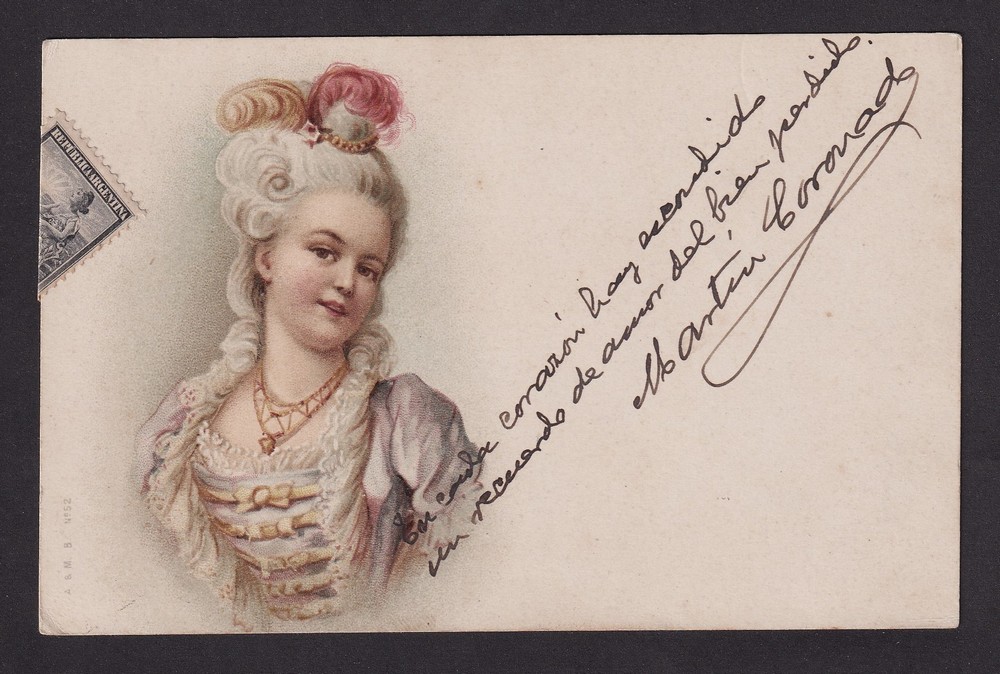 REPUBLICA ARGENTINA
En cada corazón hay escondido
un recuerdo de amor del bien perdido.
Martin Coronado
A. & M. B. Nº 52